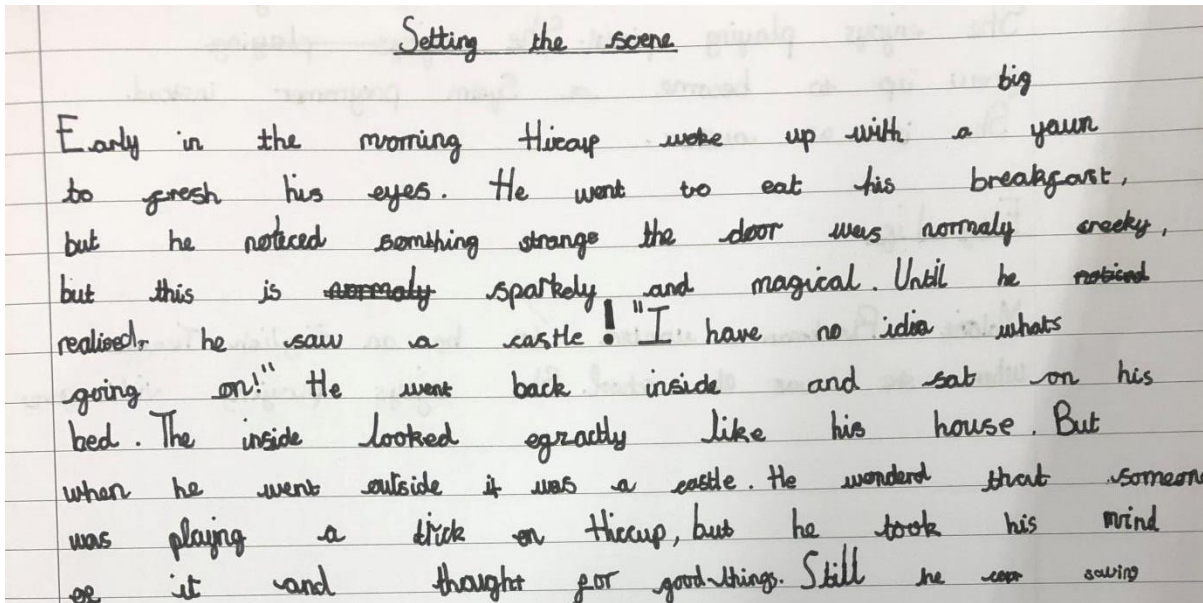 Setting the scene
big
Early in the morning Hiccup woke up with a yawn
to fresh his eyes. He went to eat his breakfast,
but he noticed somthing strange the door was normaly creeky,
but this is normaly sparkely and magical. Until he noticed
realised, he saw a castle! "I have no idia whats
going on!" He went back inside and sat on his
bed. The inside looked egractly like his house. But
when he went outside it was a castle. He wonderd that someone
was playing a trick on Hiccup, but he took his mind
it and thought for good things. Still he saving